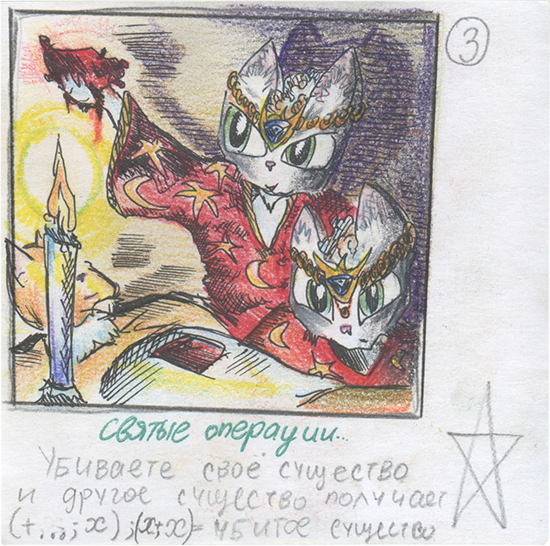 3
святые операции...
Убиваете своё существо
и другое существо получает
(+...; x) ; (x; x) = убитое существо